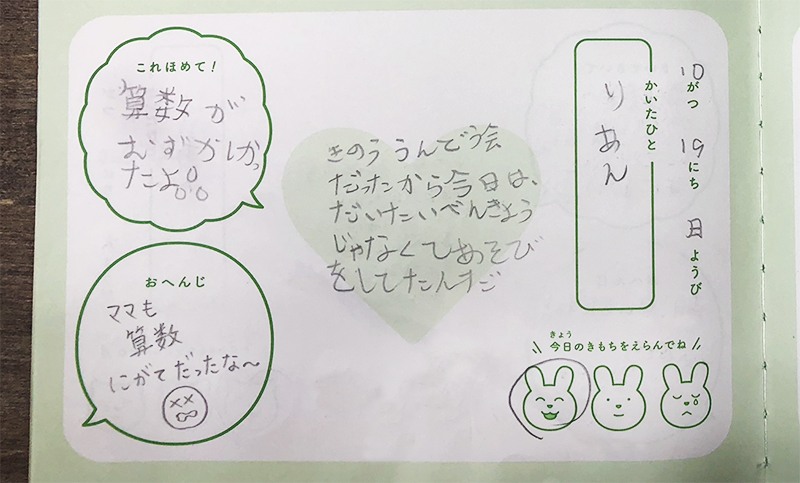 10がつ 19にち 日ようび
かいたひと
りあん
きのう うんどう会
だったから今日は、
だいたいべんきょう
じゃなくてあそび
をしてたんすご
これほめて!
算数が
むずかしかっ
たよ。
おへんじ
ママも
算数
にがてだったな〜
きょう
今日のきもちをえらんでね